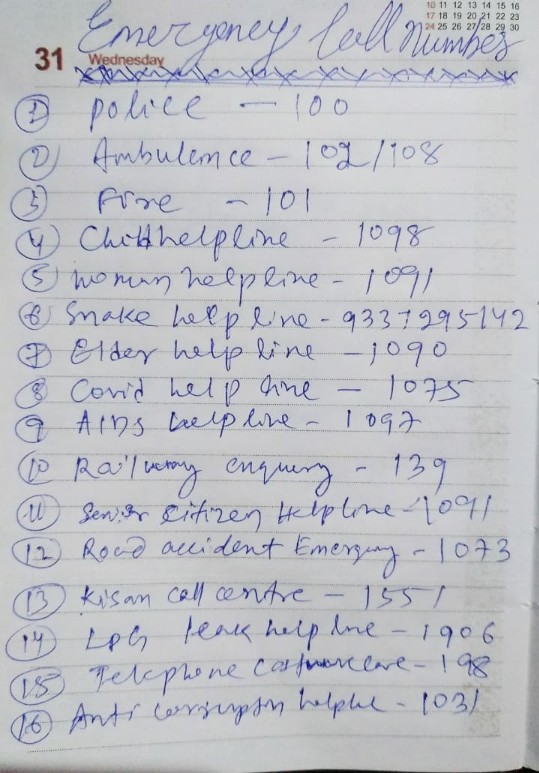 10 11 12 13 14 15 16
17 18 19 20 21 22 23
24 25 26 27 28 29 30
Emergency Call Number
31 Wednesday
1 police — 100
2 Ambulance – 102/108
3 Fire – 101
4 Child helpline – 1098
5 woman helpline – 1091
6 Snake help line – 9337295142
7 Elder help line – 1090
8 Covid help line — 1075
9 AIDs help line – 1097
10 Railway enquiry – 139
11 Senior Citizen Helpline – 1091
12 Road accident Emergency – 1073
13 Kisan call centre – 1551
14 LPG leak help line – 1906
15 Telephone – 198
16 Anti – 1031